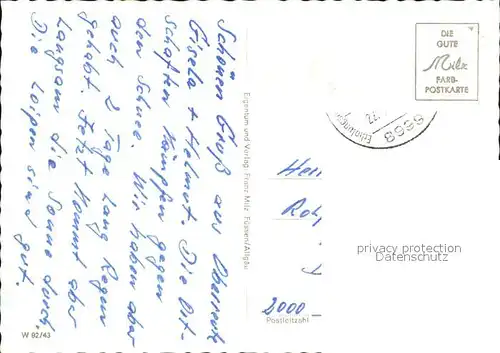 Schönen Gruß aus Oberreute
Gisela + Helmut. Die Ort-
schaften kämpfen gegen
den Schnee. Wir haben aber
auch 2 Tage lang Regen
gehabt. Jetzt kommt aber
langsam die Sonne durch.
Die Loipen sind gut.
W 92/43
Eigentum und Verlag Franz Milz Füssen/Allgäu
DIE
GUTE
Milz
FARB-
POSTKARTE
8968
Her
2000
Postleitzahl
privacy protection
Datenschutz